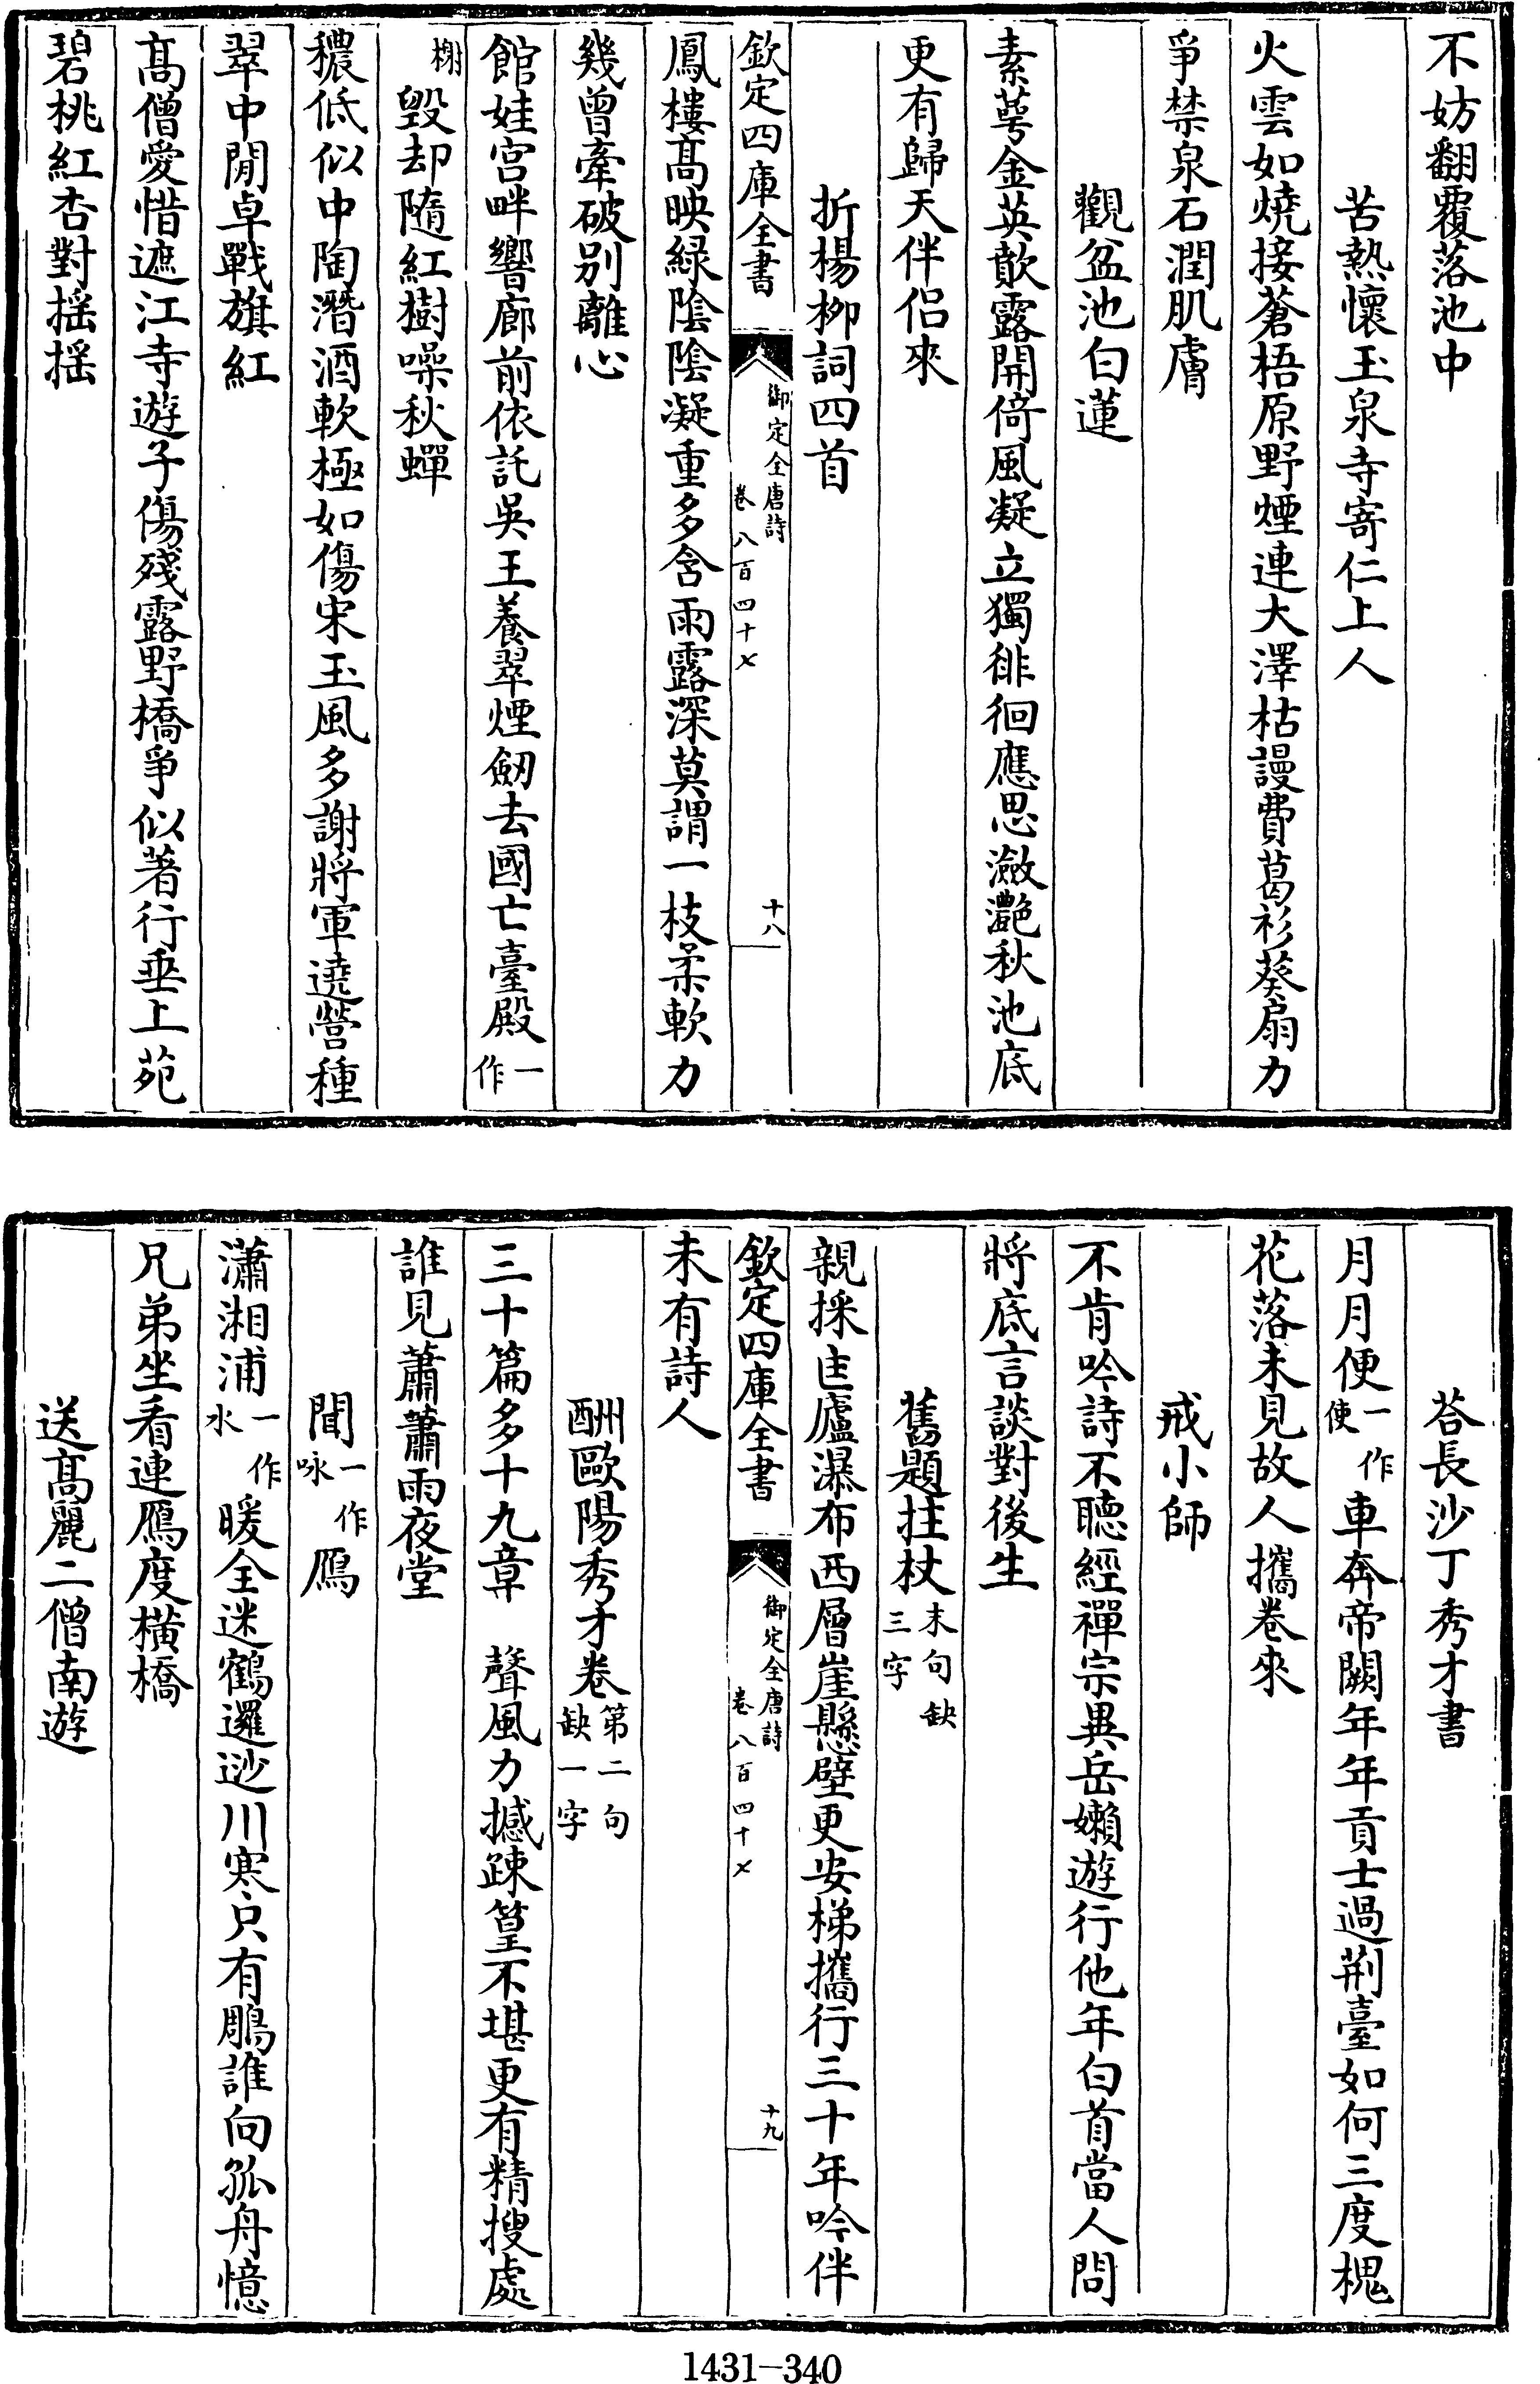 不妨翻覆落池中
苦熱懷玉泉寺寄仁上人
火雲如燒接蒼梧原野煙連大澤枯謾費葛衫葵扇力
爭禁泉石潤肌膚
觀盆池白蓮
素萼金英歕露開倚風凝立獨徘徊應思瀲灩秋池底
更有歸天伴侶來
折楊柳詞四首
欽定四庫全書
御定全唐詩
卷八百四十七
十八
鳳樓髙映緑陰陰凝重多含雨露深莫謂一枝柔軟力
幾曾牽破别離心
館娃宫畔響廊前依託吳王養翠煙劒去國亡臺殿一作
榭毀却隨紅樹噪秋蟬
穠低似中陶潛酒軟極如傷宋玉風多謝將軍遶營種
翠中閒卓戰旗紅
髙僧愛惜遮江寺遊子傷殘露野橋爭似著行垂上苑
碧桃紅杏對揺揺
荅長沙丁秀才書
月月便一作使車奔帝闕年年貢士過荆臺如何三度槐
花落未見故人攜卷來
戒小師
不肯吟詩不聽經禪宗異岳嬾遊行他年白首當人問
將底言談對後生
舊題拄杖末句缺三字
親採匡廬瀑布西層崖懸壁更安梯攜行三十年吟伴
欽定四庫全書
御定全唐詩
卷八百四十七
十九
未有詩人
酬歐陽秀才卷第二句缺一字
三十篇多十九章 聲風力撼疎篁不堪更有精搜處
誰見蕭蕭雨夜堂
聞一作咏鴈
瀟湘浦一作水暖全迷鶴邏逤川寒只有鵰誰向孤舟憶
兄弟坐看連鴈度橫橋
送髙麗二僧南遊
1431—340